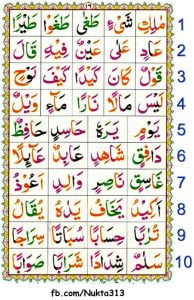 ١٦
مُلِكِ شَيْءٍ طَغٰى طَغَوْا طَيْرًا 1
عَادٍ عَلٰى عَيْنٌ فِيْهِ قَالَ 2
قَوْلٌ كَانَ كَيْدًا كَيْفَ لَوْحٍ 3
لَيْسَ مَالًا نَارًا مَآءً وَيْلٌ 4
يَوْمٍ يَرَهٗ حَاسِدٍ حَافِظٌ 5
دَافِقٍ شَاهِدٍ عَابِدٌ عَآئِلًا 6
غَاسِقٍ نَاصِرٍ وَالِدٍ اَعُوْذُ 7
اَكِيْدُ يَخَافُ يَدَهٗ يُقَالُ 8
تُرٰبًا حِسَابًا سُبَاتًا سِرَاجًا 9
سَلٰمٌ شِدَادًا شَرَابًا صَوَابًا 10
fb.com/Nukta313